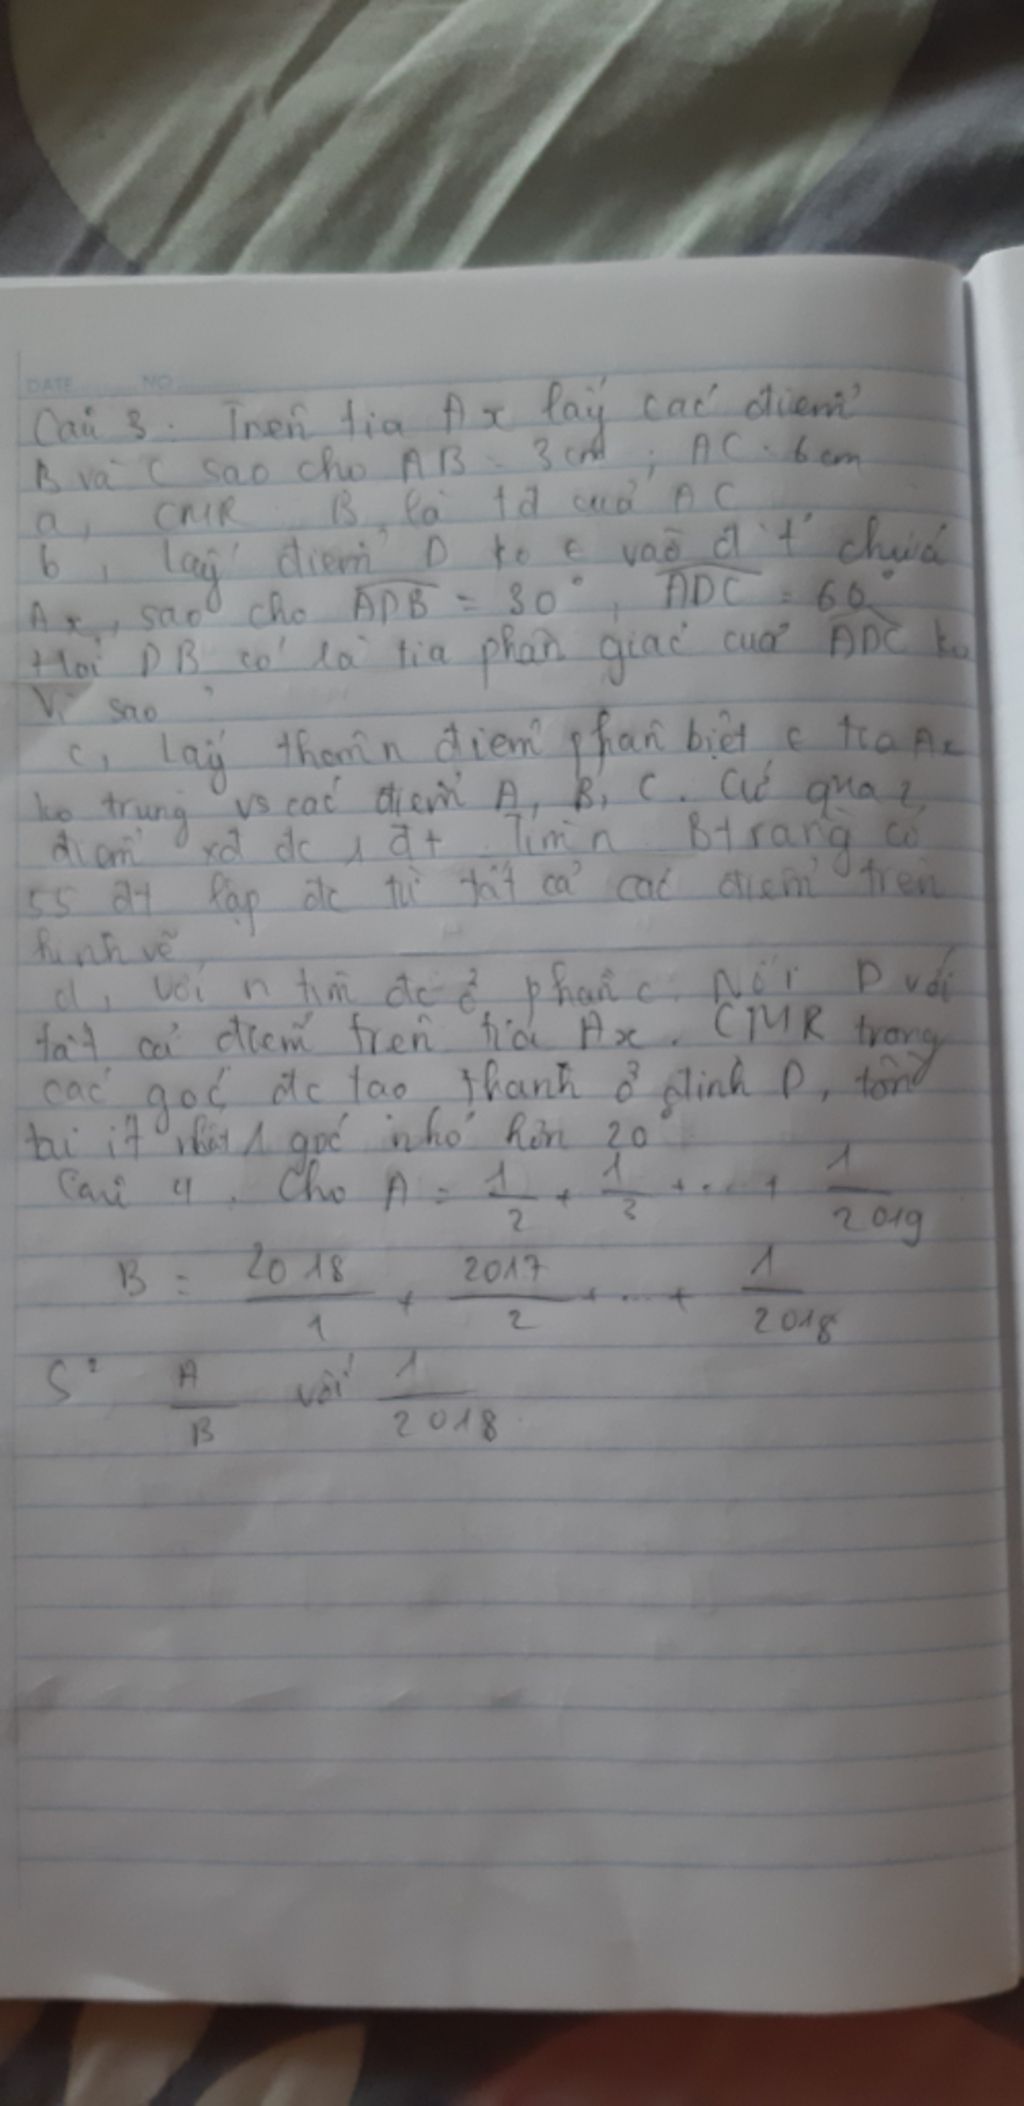 DATE NO
Câu 3. Trên tia Ax lấy các điểm
B và C sao cho AB = 3cm ; AC = 6cm
a, CMR B là tđ của AC
b, Lấy điểm D ko ∈ vào đ't' chứa
Ax, sao cho ADB = 30°, ADC = 60°
Hỏi DB có là tia phân giác của ADC ko
Vì sao
c, Lấy thêm n điểm phân biệt ∈ tia Ax
ko trùng vs các điểm A, B, C. Cứ qua 2
điểm xđ đc 1 đt. Tìm n Bt rằng có
55 đt lập đc từ tất cả các điểm trên
hình vẽ
d, với n tìm đc ở phần c. Nối D với
tất cả điểm trên tia Ax. CMR trong
các góc đc tạo thành ở đỉnh D, tồn
tại ít nhất 1 góc nhỏ hơn 20°
Câu 4. Cho A = 1/2 + 1/3 + ... + 1/2019
B = 2018/1 + 2017/2 + ... + 1/2018
S² A/B với 1/2018